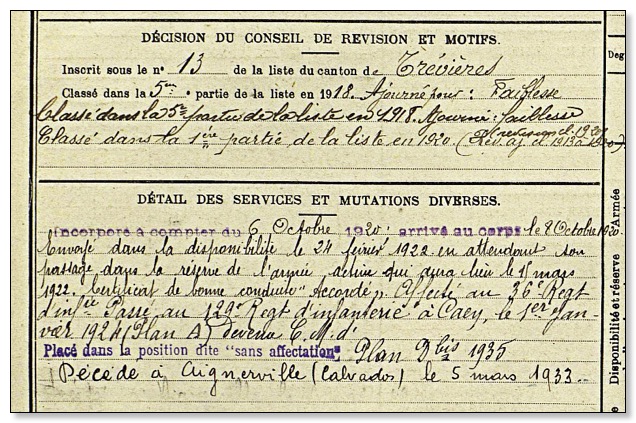 DÉCISION DU CONSEIL DE REVISION ET MOTIFS.
Inscrit sous le n° 13 de la liste du canton de Trévières
Classé dans la 5me partie de la liste en 1918. Ajourné pour: Faiblesse
Classé dans la 5e partie de la liste en 1918. Ajourné: faiblesse
Classé dans la 1ère partie de la liste en 1920. (Rév. aj. cl. 1913 à
DÉTAIL DES SERVICES ET MUTATIONS DIVERSES.
Incorporé à compter du 6 Octobre 1920. arrivé au corps le 8 Octobre 1920
Envoyé dans la disponibilité le 24 février 1922 en attendant son
passage dans la réserve de l'armée active qui aura lieu le mars
1922. Certificat de bonne conduite "Accordé" Affecté au 36e Regt
d'infie Passé au 129e Regt d'infanterie à Caen, le 1er Jan-
vier 1924 (Plan A) devenu C.M. d'
Placé dans la position dite "sans affectation" Plan D bis 1935
Décédé à Aignerville (Calvados) le 5 mars 1933.
Deg
Disponibilité et réserve
Armée